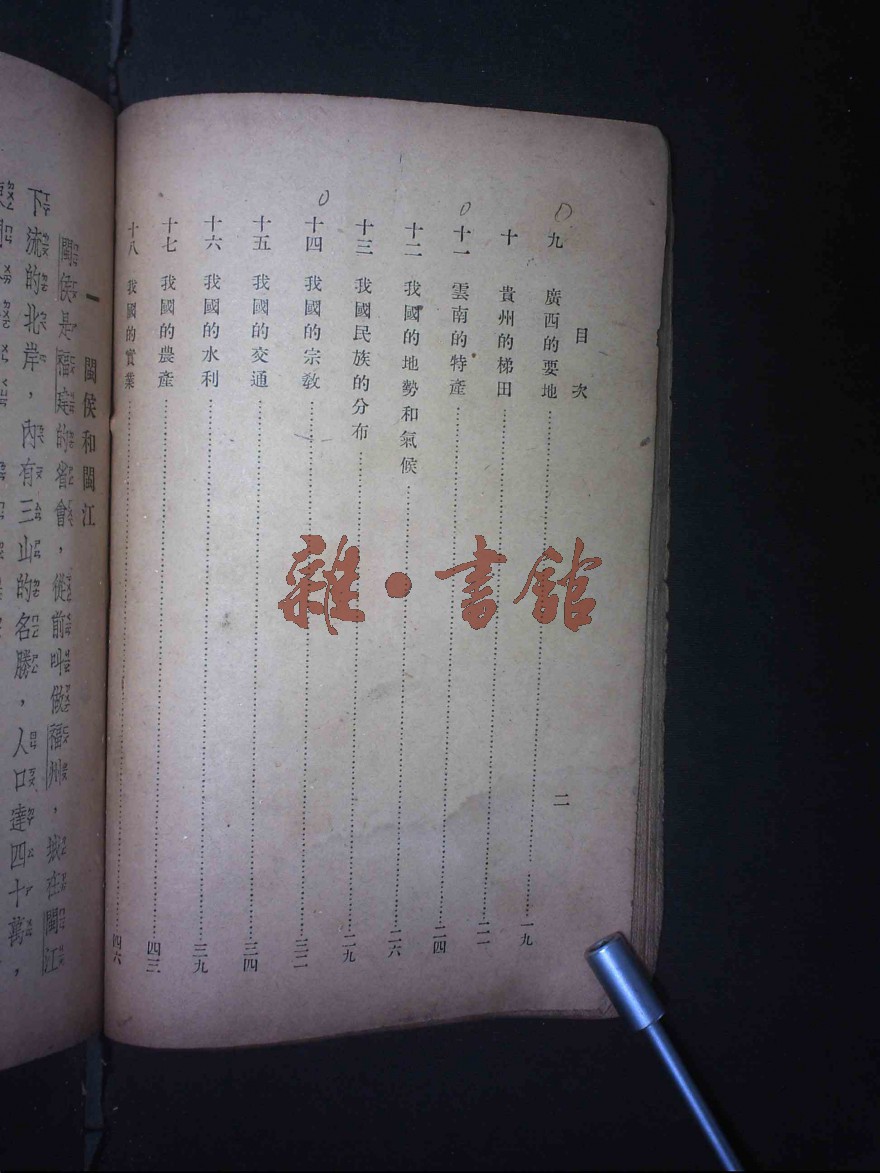 目次
二
九 廣西的要地 一九
十 貴州的梯田 二二
十一 雲南的特產 二四
十二 我國的地勢和氣候 二六
十三 我國民族的分布 二九
十四 我國的宗教 三二
十五 我國的交通 三四
十六 我國的水利 三九
十七 我國的農產 四三
十八 我國的實業 四六
一 閩侯和閩江
閩侯是福建的省會，從前叫做福州，城在閩江
下流的北岸，內有三山的名勝，人口達四十萬，
雜·書館